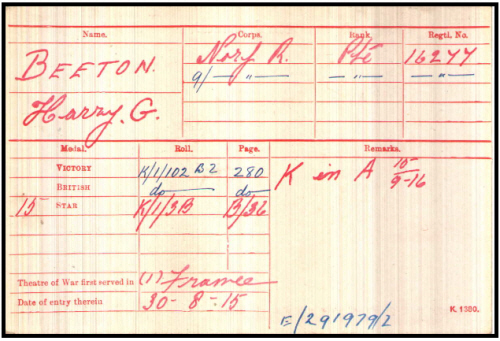 Name. Corps. Rank. Regtl. No.
BEETON. Norf R. Pte 16277
9/ — " — — " — — " —
Harry. G.
Medal. Roll. Page. Remarks.
VICTORY K/1/102 B2 280 K in A 15-9-16
BRITISH do do
15 STAR K/1/3B B/36
Theatre of War first served in (1) France
Date of entry therein 30-8-15
K. 1380.
E/291979/2